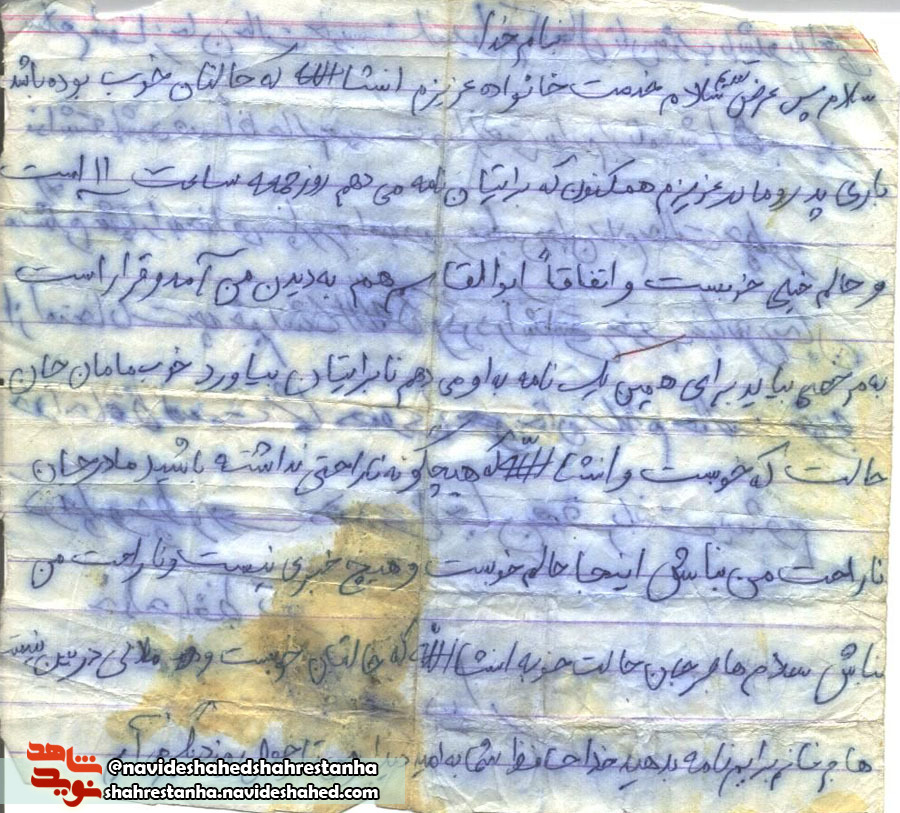 بنام خدا
سلام پس عرض سلام خدمت خانواده عزیزم انشاا... که حالتان خوب بوده باشد
باری پدر و مادر عزیزم همکنون که برایتان نامه می دهم روز جمعه ساعت ۱۱ است
و حالم خیلی خوبست و اتفاقاً ابوالقاسم هم به دیدن من آمد و قرار است
به مرخصی بیاید برای همین یک نامه به او می دهم تا برایتان بیاورد خوب مامان جان
حالت که خوبست و انشاا... که هیچگونه ناراحتی نداشته باشید مادرجان
ناراحت من نباش اینجا حالم خوبست و هیچ خبری نیست و ناراحت من
نباش سلام هاجر جان حالت خوبه انشاا... که حالتان خوبست و ملالی در بین نیست
هاجر خانم برایم نامه بدهید خداحافظ شما به امید دیدار
شاهد
نوید
@navideshahedshahrestanha
shahrestanha.navideshahed.com